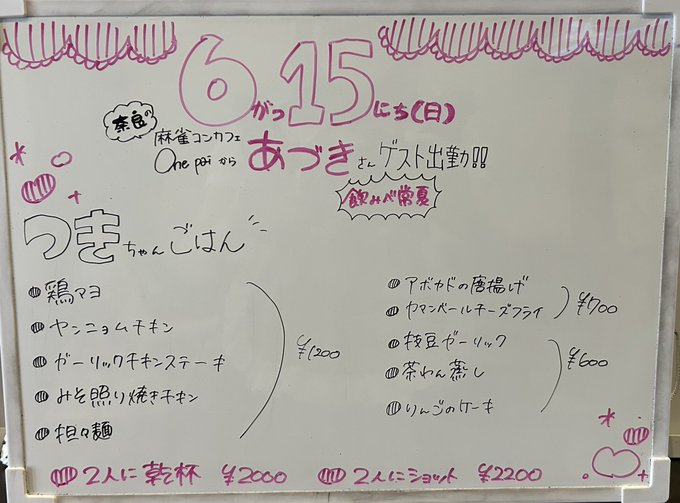 6がつ15にち(日)
奈良の
麻雀コンカフェ
One paiから あづきさんゲスト出勤!!
飲みべ常夏
つきちゃんごはん
鶏マヨ
ヤンニョムチキン
ガーリックチキンステーキ
みそ照り焼きチキン
担々麺
¥1200
アボカドの唐揚げ
カマンベールチーズフライ
¥700
枝豆ガーリック
茶わん蒸し
りんごのケーキ
¥600
2人に乾杯 ¥2000
2人にショット ¥2200